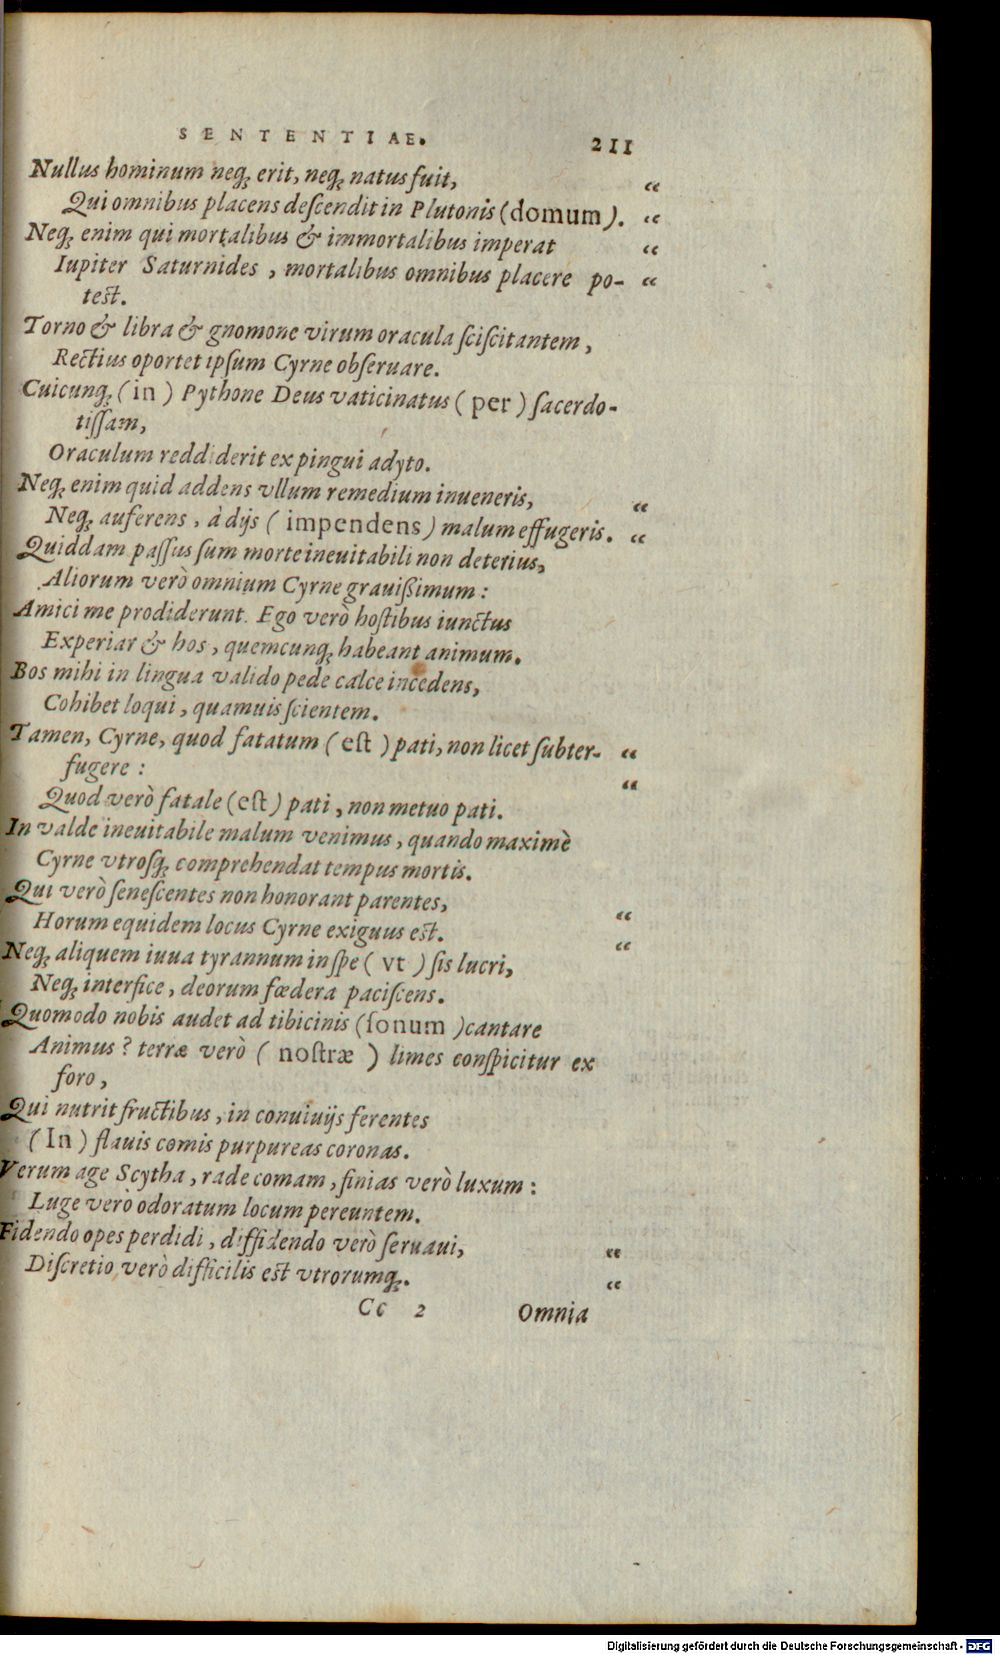 SENTENTIAE. 211
Nullus hominum neq; erit, neq; natus fuit, “
Qui omnibus placens deſcendit in Plutonis (domum). “
Neq; enim qui mortalibus & immortalibus imperat “
Iupiter Saturnides, mortalibus omnibus placere po- “
teſt.
Torno & libra & gnomone virum oracula ſciſcitantem,
Rectius oportet ipſum Cyrne obſeruare.
Cuicunq; (in) Pythone Deus vaticinatus (per) ſacerdo-
tiſſam,
Oraculum reddiderit ex pingui adyto.
Neq; enim quid addens vllum remedium inueneris, “
Neq; auferens, à dijs (impendens) malum effugeris. “
Quiddam paſſus ſum morte ineuitabili non deterius,
Aliorum verò omnium Cyrne grauißimum:
Amici me prodiderunt. Ego verò hoſtibus iunctus
Experiar & hos, quemcunq; habeant animum.
Bos mihi in lingua valido pede calce incedens,
Cohibet loqui, quamuis ſcientem.
Tamen, Cyrne, quod fatatum (eſt) pati, non licet ſubter- “
fugere: “
Quod verò fatale (eſt) pati, non metuo pati.
In valde ineuitabile malum venimus, quando maximè
Cyrne vtroſq; comprehendat tempus mortis.
Qui verò ſeneſcentes non honorant parentes, “
Horum equidem locus Cyrne exiguus eſt. “
Neq; aliquem iuua tyrannum in ſpe (vt) ſis lucri,
Neq; interfice, deorum fœdera paciſcens.
Quomodo nobis audet ad tibicinis (ſonum) cantare
Animus? terræ verò (noſtræ) limes conſpicitur ex
foro,
Qui nutrit fructibus, in conuiuijs ferentes
(In) flauis comis purpureas coronas.
Verum age Scytha, rade comam, finias verò luxum:
Luge verò odoratum locum pereuntem.
Fidendo opes perdidi, diffidendo verò ſeruaui, “
Diſcretio verò difficilis eſt vtrorumq;. “
Cc 2 Omnia
Digitalisierung gefördert durch die Deutsche Forschungsgemeinschaft - DFG